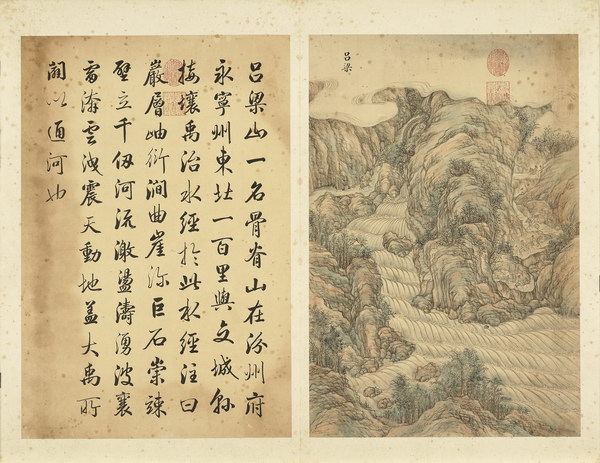 呂梁
呂梁山一名骨脊山在汾州府
永寧州東北一百里與交城縣
接壤禹治水經於此水經注曰
巖層岫衍澗曲崖深巨石崇竦
壁立千仞河流激盪濤湧波襄
雷渀電洩震天動地蓋大禹所
闢以通河也